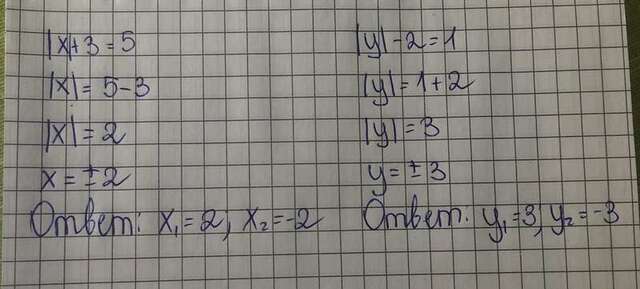 |x|+3=5
|x|=5-3
|x|=2
x=±2
Ответ: x₁=2, x₂=-2
|y|-2=1
|y|=1+2
|y|=3
y=±3
Ответ: y₁=3, y₂=-3